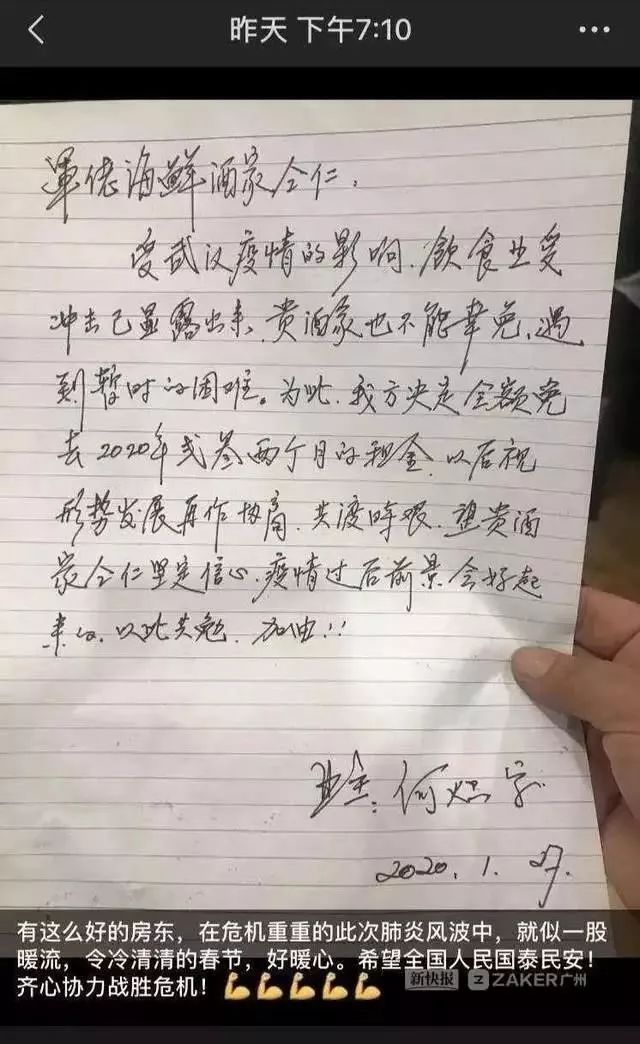 昨天 下午7:10
運佬海鮮酒家仝仁,
受武汉疫情的影响、飲食业受
冲击已显露出来、贵酒家也不能幸免、遇
到暂时的困难。为此、我方决定全额免
去2020年弍叁两个月的租金、以后视
形势发展再作协商、共渡時艰、望贵酒
家仝仁坚定信心、疫情过后前景会好起
来的、以此共勉、加油!!
业主:何
2020.1.27.
有这么好的房东，在危机重重的此次肺炎风波中，就似一股
暖流，令冷清清的春节，好暖心。希望全国人民国泰民安！
齐心协力战胜危机！💪💪💪💪💪
新快报 ZAKER广州